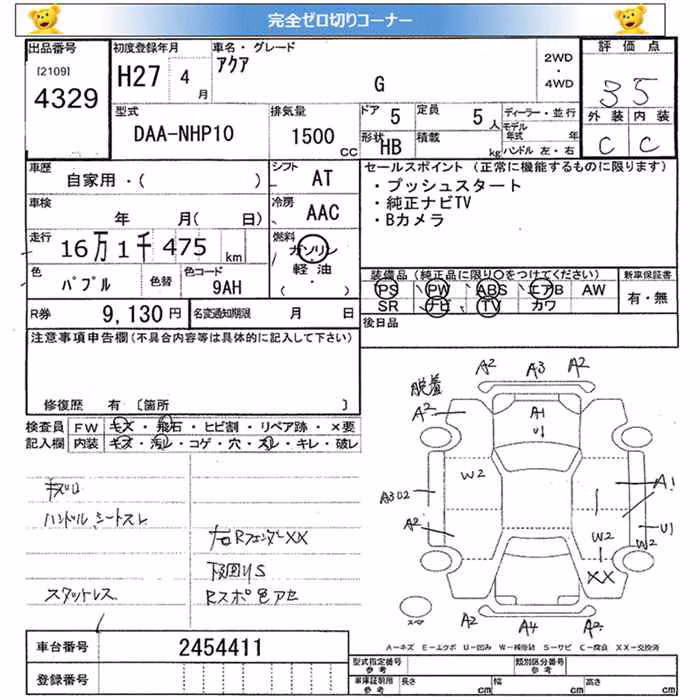 完全ゼロ切りコーナー
出品番号
[2109]
4329
初度登録年月
H27 4月
車名・グレード
アクア
G
2WD
・
4WD
評価点
3.5
外装 内装
C C
型式
DAA-NHP10
排気量
1500 CC
ドア 5
定員 5人
形状 HB
積載 kg
ディーラー・並行
モデル年式 年
ハンドル 左・右
車歴
自家用・( )
シフト AT
車検
年 月( 日)
冷房 AAC
走行
16万1千475 km
燃料
ガソリン
軽油
( ・ )
色
パプル
色替
色コード
9AH
R券 9,130円
名変通知期限 月 日
セールスポイント (正常に機能するものに限ります)
・プッシュスタート
・純正ナビTV
・Bカメラ
装備品(純正品に限り○をつけてください)
PS PW ABS エアB AW
SR ナビ TV カワ
新車保証書
有・無
後日品
注意事項申告欄(不具合内容等は具体的に記入して下さい)
修復歴 有 〔箇所 〕
検査員記入欄
FW キズ・飛石・ヒビ割・リペア跡・×要
内装 キズ・汚レ・コゲ・穴・スレ・キレ・破レ
ハンドル シートスレ
右RフェンダーXX
下回りS
スタットレス
脱着
A2 A3 A2
A2
A1
U1
W2
A3U2
A2
A1
U1
W2
W2
XX
スペア
A2 A4 A2
A-キズ E-エクボ U-凹み W-補修跡 S-サビ C-腐食 XX-交換済
車台番号 2454411
登録番号
型式指定番号 参考
類別区分番号 参考
車庫証明用 参考
長さ cm 幅 cm 高さ cm